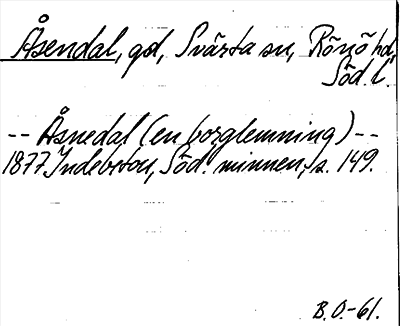 Åsendal, gd, Svärta sn, Rönö hd,
Söd. l.
-- Åsnedal (en borglemning) --
1877 Indebetou, Söd. minnen, s. 149.
B.O.-61.